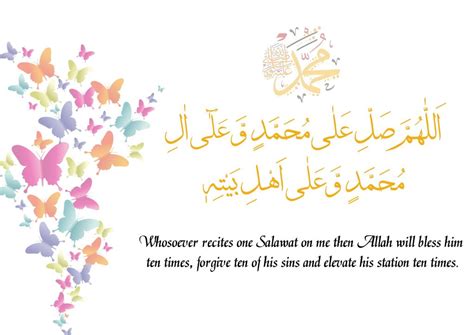 محمد
اَللّٰهُمَّ صَلِّ عَلٰى مُحَمَّدٍ وَّ عَلٰٓى اٰلِ
مُحَمَّدٍ وَّ عَلٰى اَهْلِ بَيْتِهٖ
Whosoever recites one Salawat on me then Allah will bless him
ten times, forgive ten of his sins and elevate his station ten times.